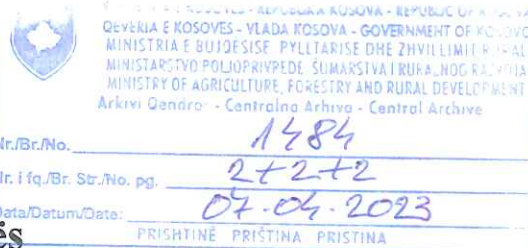 QEVERIA E KOSOVËS - VLADA KOSOVA - GOVERNMENT OF KOSOVO
MINISTRIA E BUJQESISË PYLLTARISË DHE ZHVILLIMIT RURAL
MINISTARSTVO POLJOPRIVREDE ŠUMARSTVA I RURALNOG RAZVOJA
MINISTRY OF AGRICULTURE, FORESTRY AND RURAL DEVELOPMENT
Arkivi Qendror - Centralna Arhiva - Central Archive
Nr./Br./No. 1484
Nr. i fq./Br. Str./No. pg. 2+2+2
Data/Datum/Date: 07.04.2023
PRISHTINË PRIŠTINA PRISTINA
ës